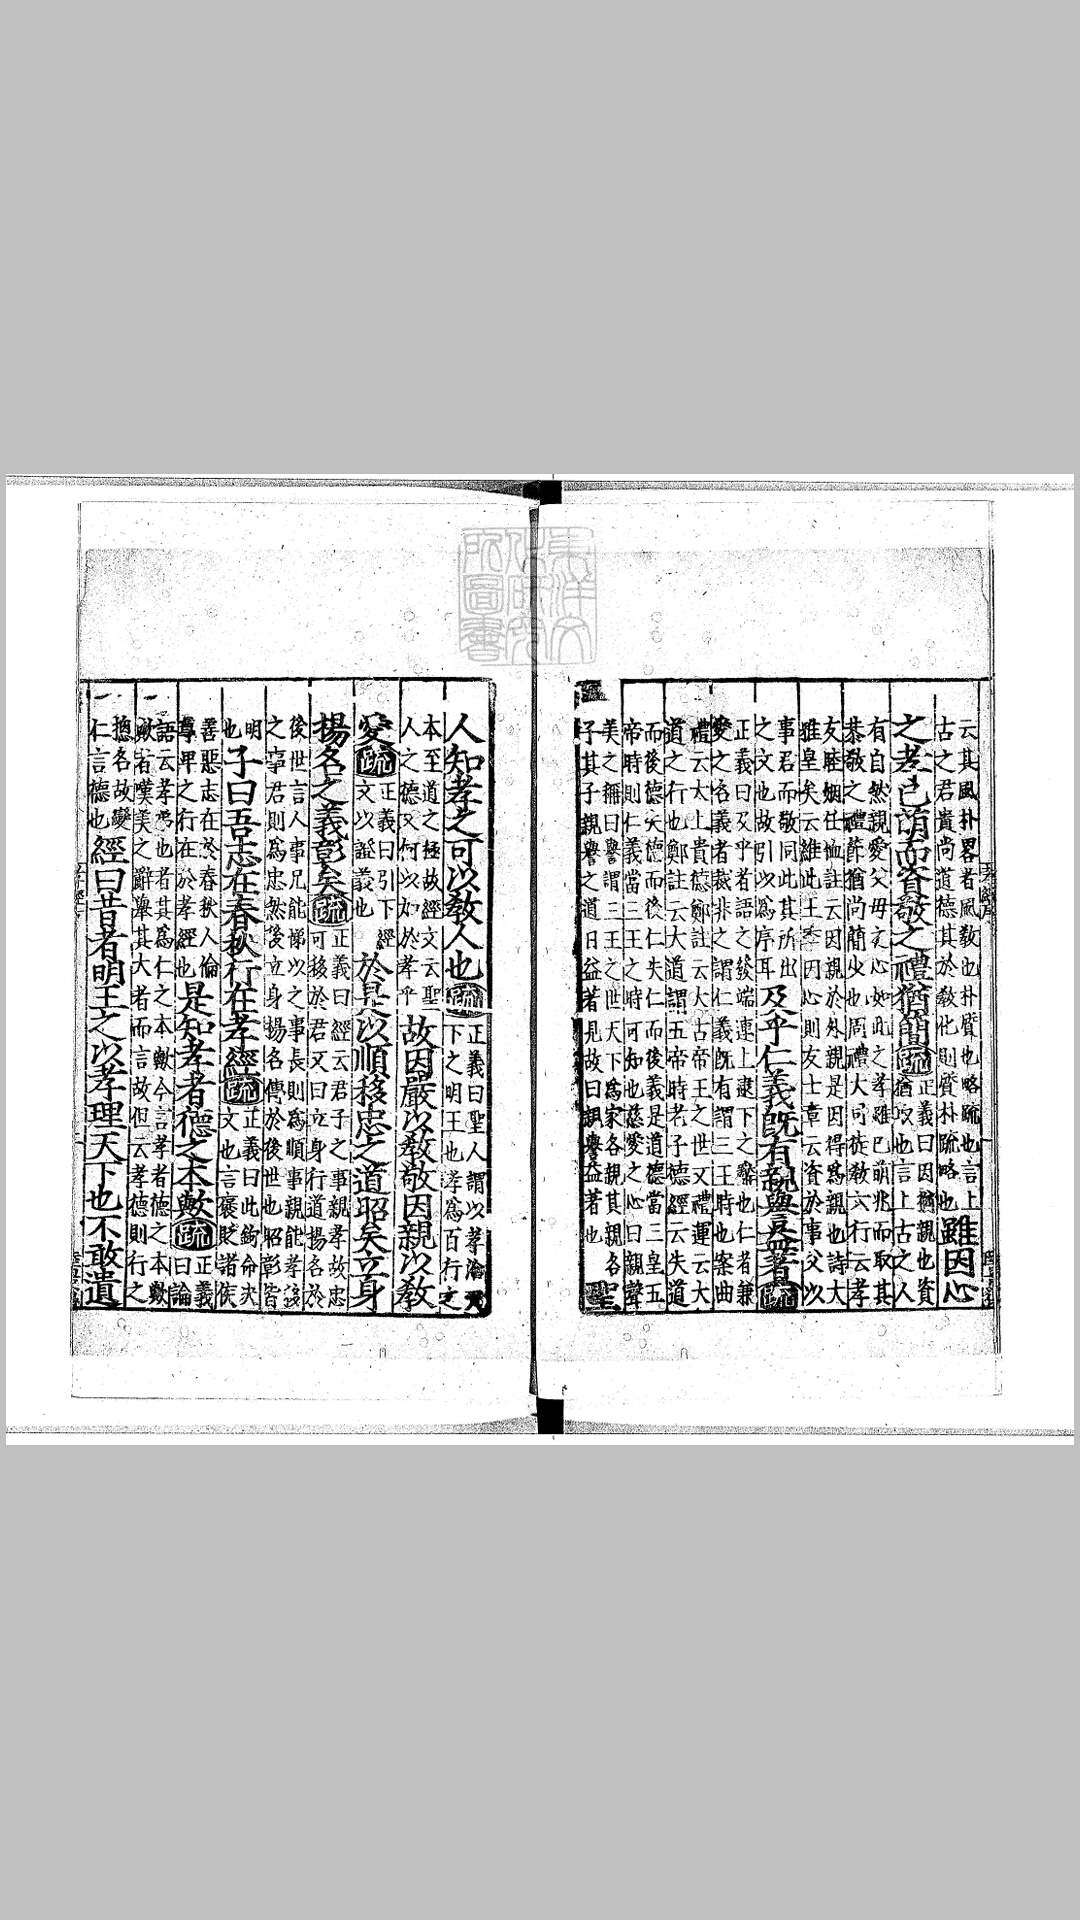 云其風朴畧者風敎也朴質也略疏也言上
古之君貴尚道德其於敎化則質朴疏略也雖因心
之孝已萌而資敬之禮猶簡疏正義曰因猶親也資
猶取也言上古之人
有自然親愛父母之心如此之孝雖已萌兆而取其
恭敬之禮節猶尚簡少也周禮大司徒敎六行云孝
友睦姻任恤註云因親於外親是因得爲親也詩大
雅皇矣云維此王季因心則友士章云資於事父以
事君而敬同此其所出
之文也故引以爲序耳及乎仁義旣有親譽益著疏
正義曰及乎者語之發端連上逮下之辭也仁者兼
愛之名義者裁非之謂仁義旣有謂三王時也案曲
禮云太上貴德鄭註云大古帝王之世又禮運云大
道之行也鄭註云大道謂五帝時老子德經云失道
而後德失德而後仁失仁而後義是道德當三皇五
帝時則仁義當三王之時可知也慈愛之心曰親聲
美之稱曰譽謂三王之世天下爲家各親其親各
子其子親譽之道日益著見故曰親譽益著也聖
人知孝之可以敎人也疏正義曰聖人謂以孝治天
下之明王也孝爲百行之
本至道之極故經文云聖
人之德又何以加於孝乎故因嚴以敎敬因親以敎
愛疏正義曰引下經
文以證義也於是以順移忠之道昭矣立身
揚名之義彰矣疏正義曰經云君子之事親孝故忠
可移於君又曰立身行道揚名於
後世言人事兄能悌以之事長則爲順事親能孝移
之事君則爲忠然後立身揚名傳於後世也昭彰皆
明
也子曰吾志在春秋行在孝經疏正義曰此鉤命決
文也言褒貶諸侯
善惡志在於春秋人倫
尊卑之行在於孝經也是知孝者德之本歟疏正義
曰論
語云孝弟也者其爲仁之本歟今言孝者德之本歟
歟者嘆美之辭舉其大者而言故但云孝德則行之
揔名故變
仁言德也經曰昔者明王之以孝理天下也不敢遺